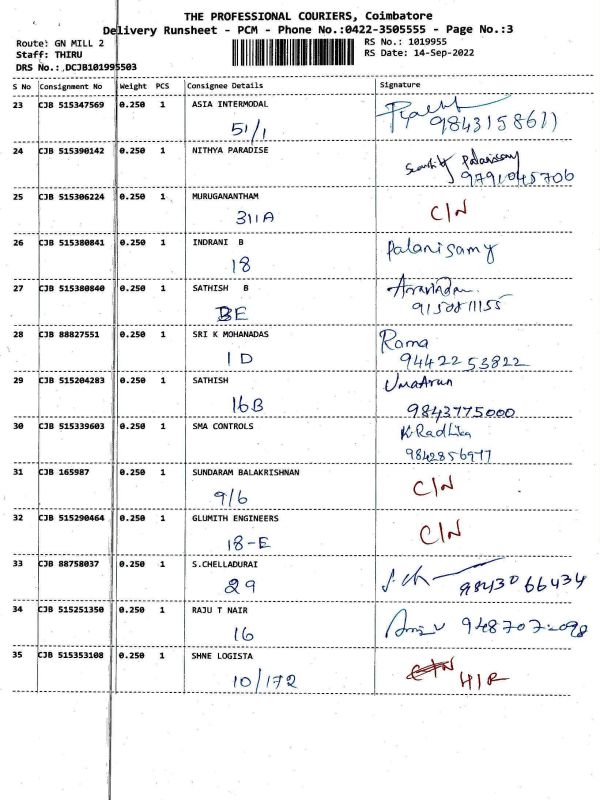 THE PROFESSIONAL COURIERS, Coimbatore
Delivery Runsheet - PCM - Phone No.:0422-3505555 - Page No.:3
Route: GN MILL 2 RS No.: 1019955
Staff: THIRU RS Date: 14-Sep-2022
DRS No.: DCJB101995503
S No Consignment No Weight PCS Consignee Details Signature
23 CJB 515347569 0.250 1 ASIA INTERMODAL
51/1 9843158671
24 CJB 515390142 0.250 1 NITHYA PARADISE
Palanisamy
9791045706
25 CJB 515306224 0.250 1 MURUGANANTHAM
311A C/N
26 CJB 515380841 0.250 1 INDRANI B Palanisamy
18
27 CJB 515380840 0.250 1 SATHISH B Aravindan
BE
28 CJB 88827551 0.250 1 SRI K MOHANADAS Rama
1D 94422 53822
29 CJB 515204283 0.250 1 SATHISH UmaArun
16B 9843775000
30 CJB 515339603 0.250 1 SMA CONTROLS K.Radhika
9842856977
31 CJB 165987 0.250 1 SUNDARAM BALAKRISHNAN
9/6 C/N
32 CJB 515290464 0.250 1 GLUMITH ENGINEERS
18-E C/N
33 CJB 88758037 0.250 1 S.CHELLADURAI
29 9843066434
34 CJB 515251350 0.250 1 RAJU T NAIR
16
35 CJB 515353108 0.250 1 SHNE LOGISTA C/N
10/172 H/R